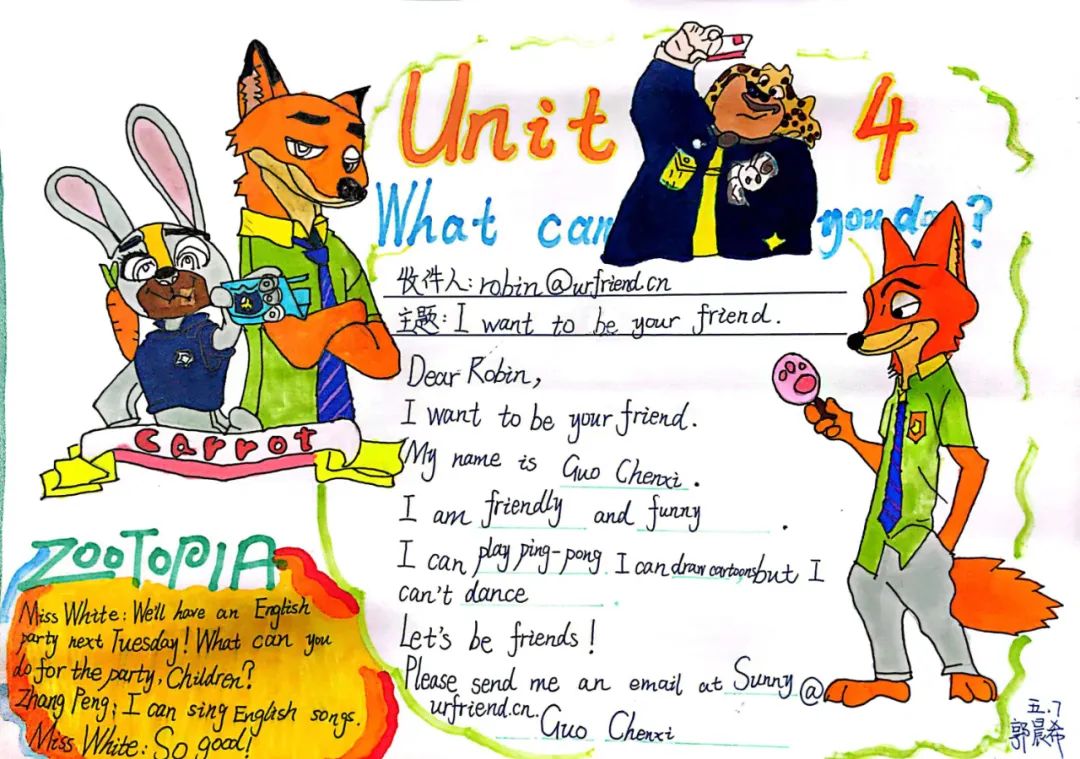 Unit 4
What can you do?
收件人: robin@urfriend.cn
主题: I want to be your friend.
Dear Robin,
I want to be your friend.
My name is Guo Chenxi.
I am friendly and funny.
I can play ping-pong. I can draw cartoons but I
can't dance.
Let's be friends!
Please send me an email at Sunny@
urfriend.cn.
Guo Chenxi
carrot
ZOOTOPIA
Miss White: We'll have an English
party next Tuesday! What can you
do for the party, Children?
Zhang Peng: I can sing English songs.
Miss White: So good!
五.7
郭晨希